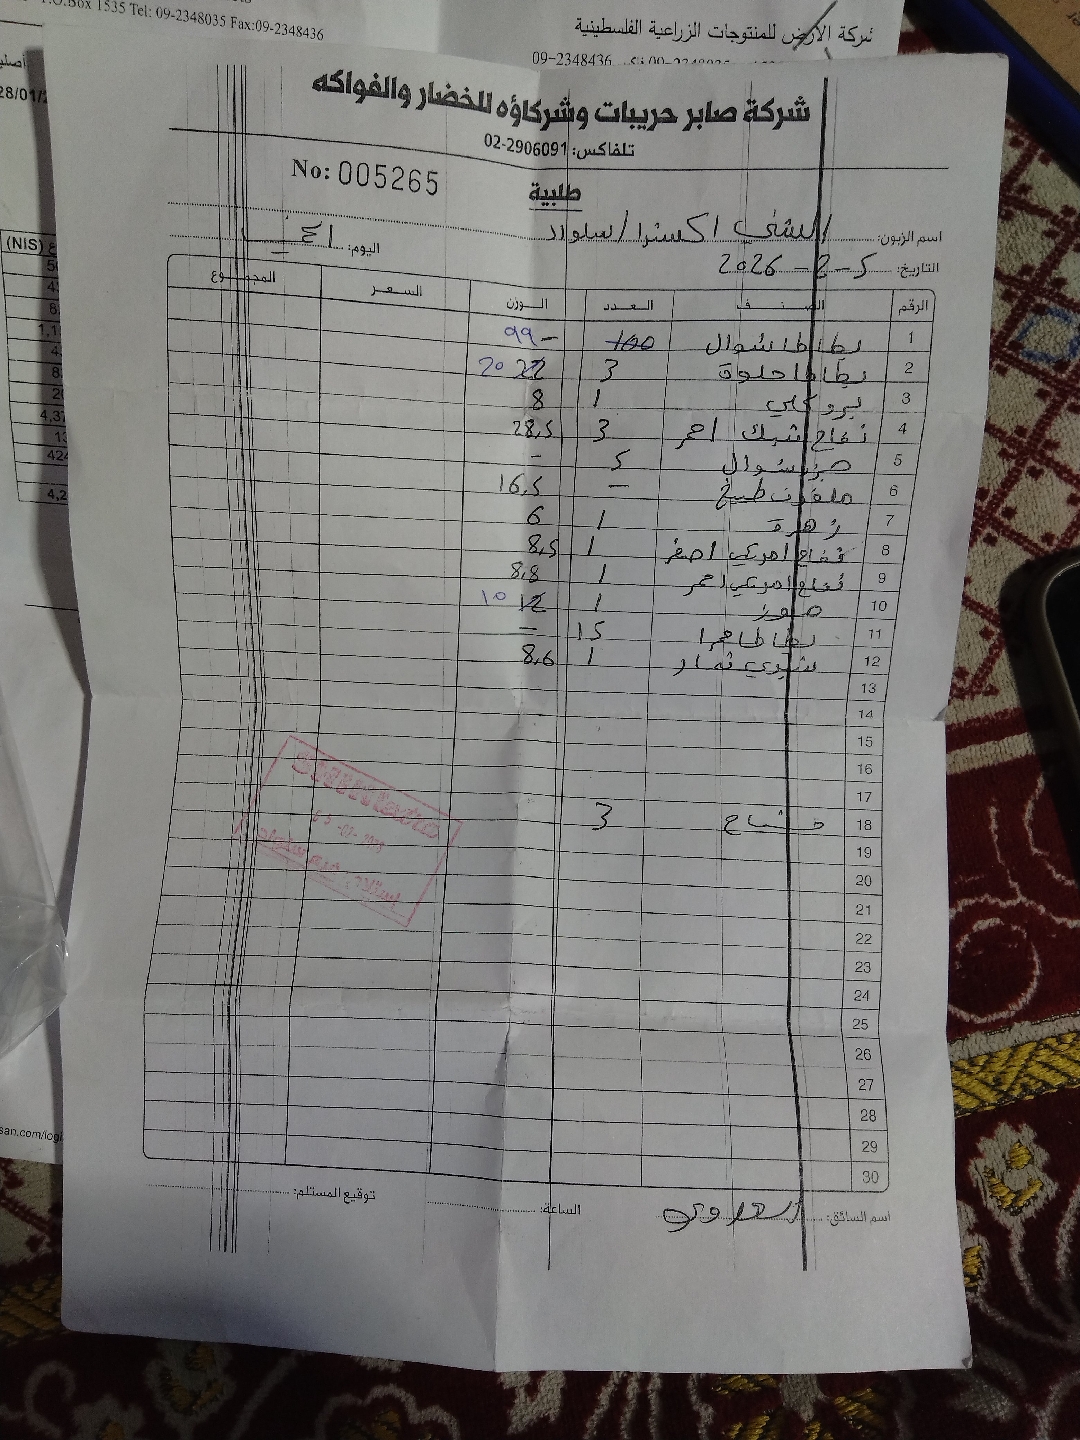 P.O.Box 1535 Tel: 09-2348035 Fax:09-2348436
شركة الأرض للمنتوجات الزراعية الفلسطينية
09-2348436
28/01/
(NIS)
شركة صابر حريبات وشركاؤه للخضار والفواكه
تلفاكس: 02-2906091
No: 005265
طلبية
اسم الزبون: الشني اكسترا / سلواد
اليوم:
التاريخ: 5-2-2026
الرقم الصنف العدد الوزن السعر المجموع
1 بطاطا شوال 100 99-
2 بطاطا حلوة 3 22 20
3 بروكلي 1 8
4 تفاح شبك احمر 3 28,5
5 جزر شوال 5 -
6 ملفوف طبيخ - 16,5
7 زهرة 1 6
8 تفاح امريكي اصفر 1 8,5
9 تفاح امريكي احمر 1 8,8
10 1 12 10
11 بطاطا حمرا 15 -
12 شيري 1 8,6
13
14
15
16
17
18 مشاح 3
19
20
21
22
23
24
25
26
27
28
29
30
اسم السائق:
الساعة:
توقيع المستلم:
san.com/logi